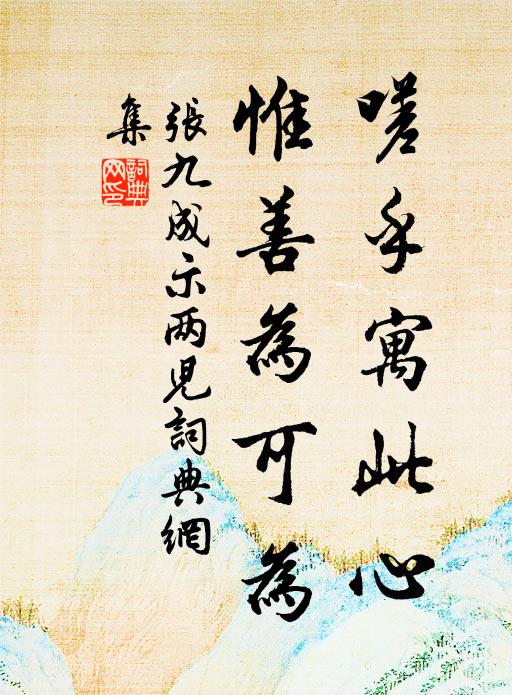 嗟乎寓此心
惟善為可為
張九成示两児詞典網
集
詞典網印